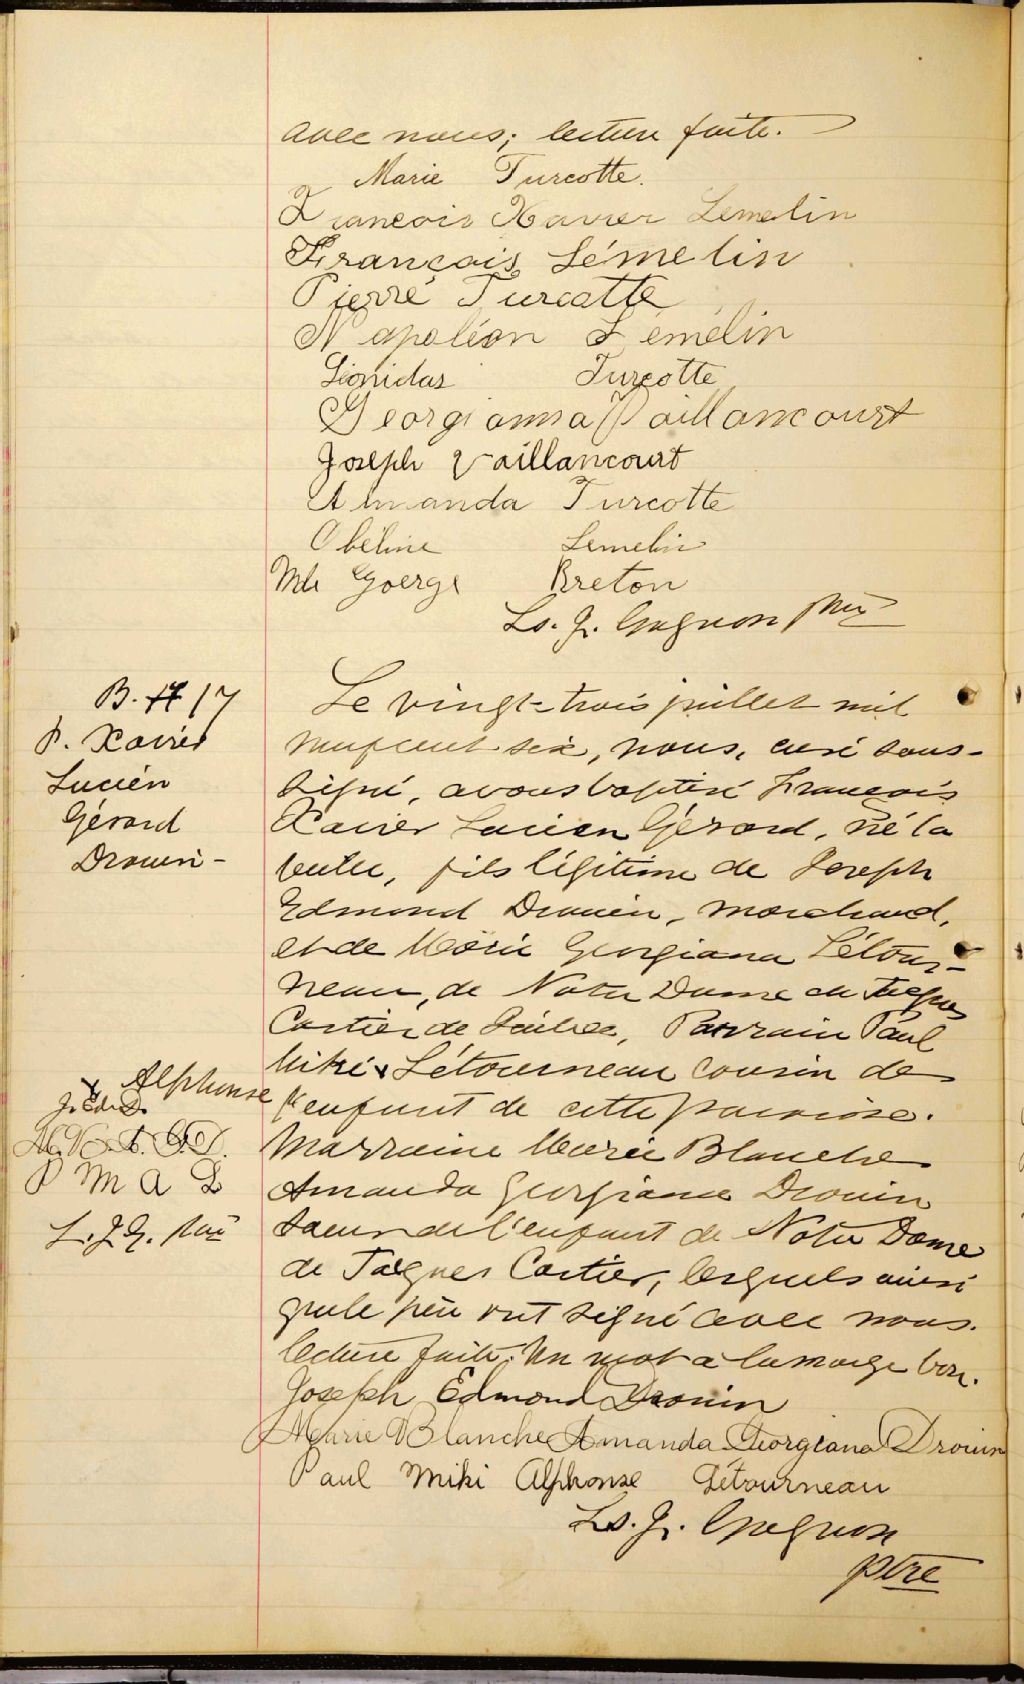 avec nous; lecture faite.
Marie Turcotte.
François Xavier Lemelin
Français Lémelin
Pierré Turcotte
Napoléon Lemélin
Léonidas Turcotte
Georgianna Vaillancourt
Joseph Vaillancourt
Amanda Turcotte
Obéline Lemelin
Goerge Breton
Ls. J. Gagnon ptre
B. 17
F. Xavier
Lucien
Gérard
Drouin -
Le vingt-trois juillet mil
neuf cent six, nous, curé sous-
signé, avons baptisé François
Xavier Lucien Gérard, né la
veille, fils légitime de Joseph
Edmond Drouin, marchand,
et de Marie Georgiana Létour-
neau, de Notre Dame de Jacques
Cartier de Québec, Parrain Paul
Miki x Létourneau cousin de
l'enfant de cette paroisse.
Marraine Marie Blanche
Amanda Georgiana Drouin
soeur de l'enfant de Notre Dame
de Jacques Cartier, lesquels ainsi
que le père ont signé avec nous.
lecture faite. Un mot à la marge bon.
x Alphonse
J. Ed. D.
M. B. A. G. D.
P M A L
L. J. G. ptre
Joseph Edmond Drouin
Marie Blanche Amanda Georgiana Drouin
Paul Miki Alphonse Létourneau
Ls. J. Gagnon
ptre